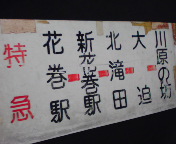 特急
花巻駅
新花巻駅
北滝田
大迫
川原の坊